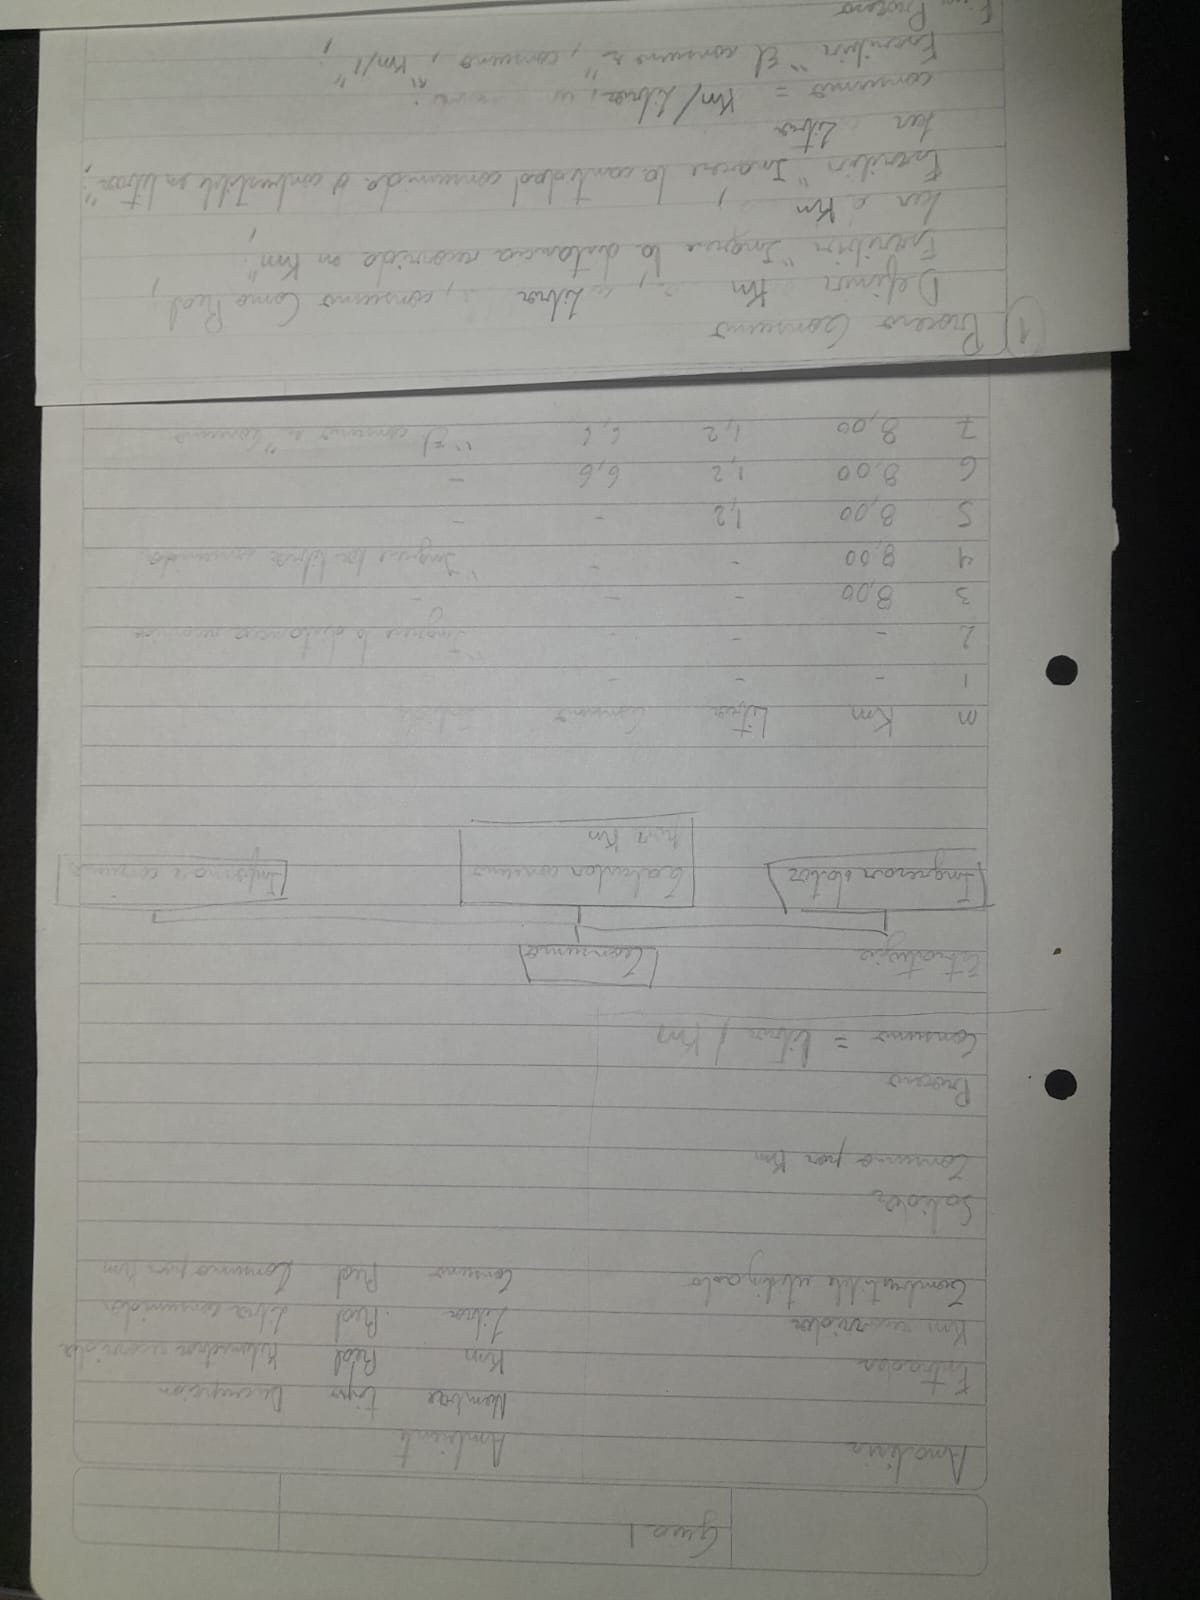 Guia 1
Analisis Ambiente
Nombre tipo Descripcion
Entradas Km Real Kilometros recorridos
Km recorridos Litros Real Litros consumidos
Combustible utilizado Consumo Real Consumo por Km
Salidas
Consumo por Km
Proceso
Consumo = litros / Km
Estrategia
Consumo
Ingresar datos Calcular consumo Informar consumo
por Km
m Km Litros Consumo salida
1 - - -
2 - - - "Ingrese la distancia recorrida
3 8,00 - - -
4 8,00 - - "Ingrese los litros consumidos
5 8,00 1,2 - -
6 8,00 1,2 6,6 -
7 8,00 1,2 6,6 "El consumo es" consumo
1 Proceso Consumo
Definir Km, Litros, consumo Como Real;
Escribir "Ingrese la distancia recorrida en Km";
Leer Km;
Escribir "Ingrese la cantidad consumida d combustible en litros";
Leer Litros
consumo = Km/Litros;
Escribir "El consumo es", consumo, "Km/l";
Fin Proceso